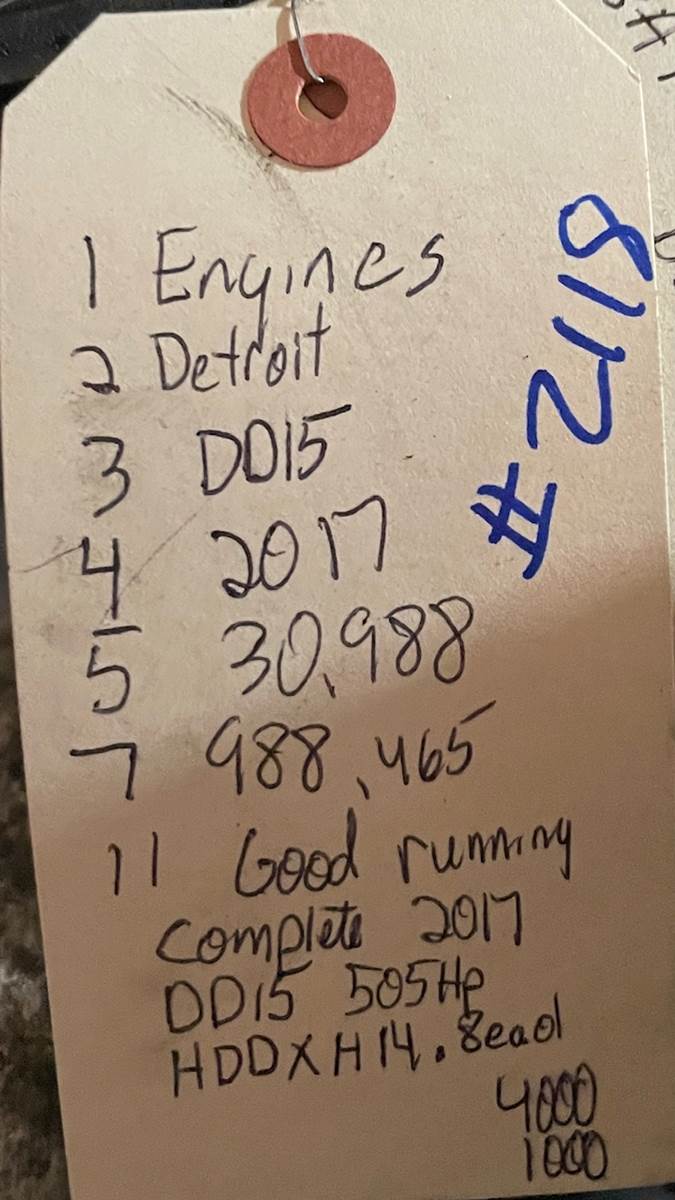 1 Engines
2 Detroit
3 DD15
4 2017
5 30,988
7 988,465
11 Good running
complete 2017
DD15 505Hp
HDDXH14.8ead
4000
1000
#2118